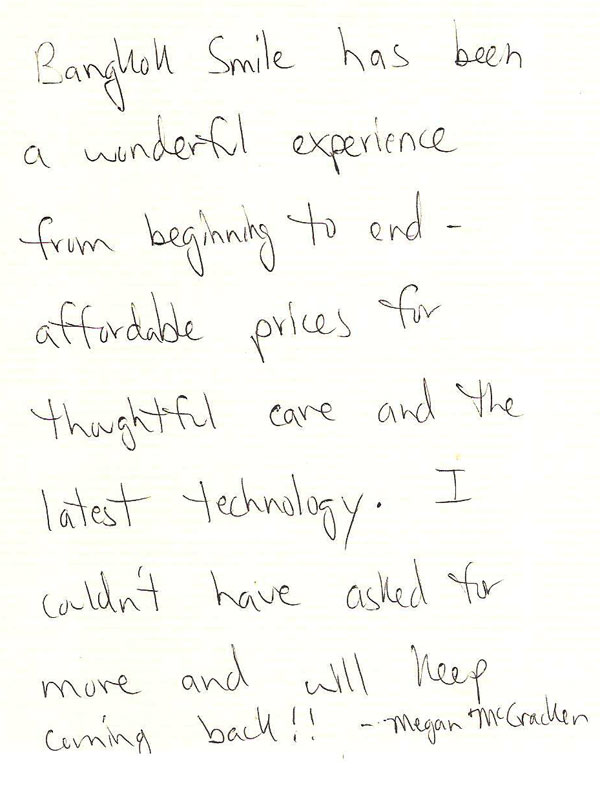 Bangkok Smile has been
a wonderful experience
from beginning to end -
affordable prices for
thoughtful care and the
latest technology. I
couldn't have asked for
more and will keep
coming back!! - Megan McCracken